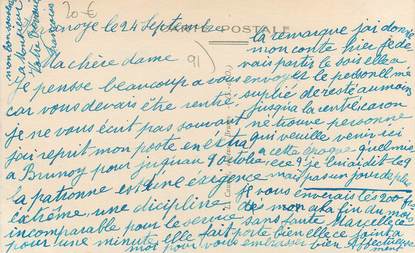 20-€
Lanoye le 24 Septembre
POSTALE
Ma chère dame
91)
Je pensse beaucoup a vous
car vous devais être rentré
Je ne vous écrit pas souvant
jai reprit mon poste en éxtra
a Brunoy pour jusquau 9 octobre
la patronne est dune éxigence
éxtrême une dicipline
incomparable pour le service
pour une minute elle fait
la remarque jai donné
mon conte hier je de
vais partir le sois elle a
envoyes le personell mi
suplié de resté au moin
jusqua la
ne trouve personne
qui veuille venir ici
a cette époque quelmie
ece je luiaidit les
mais pas un jour de plus
Je vous enverais les 200 frs
des mon a la fin du mot
sans faute Marcelle ce
porte bien elle ce joint a
moi pour vous embrasser bien Affectueuse
ment
mon bon souvenir
a Monsieur
Votre